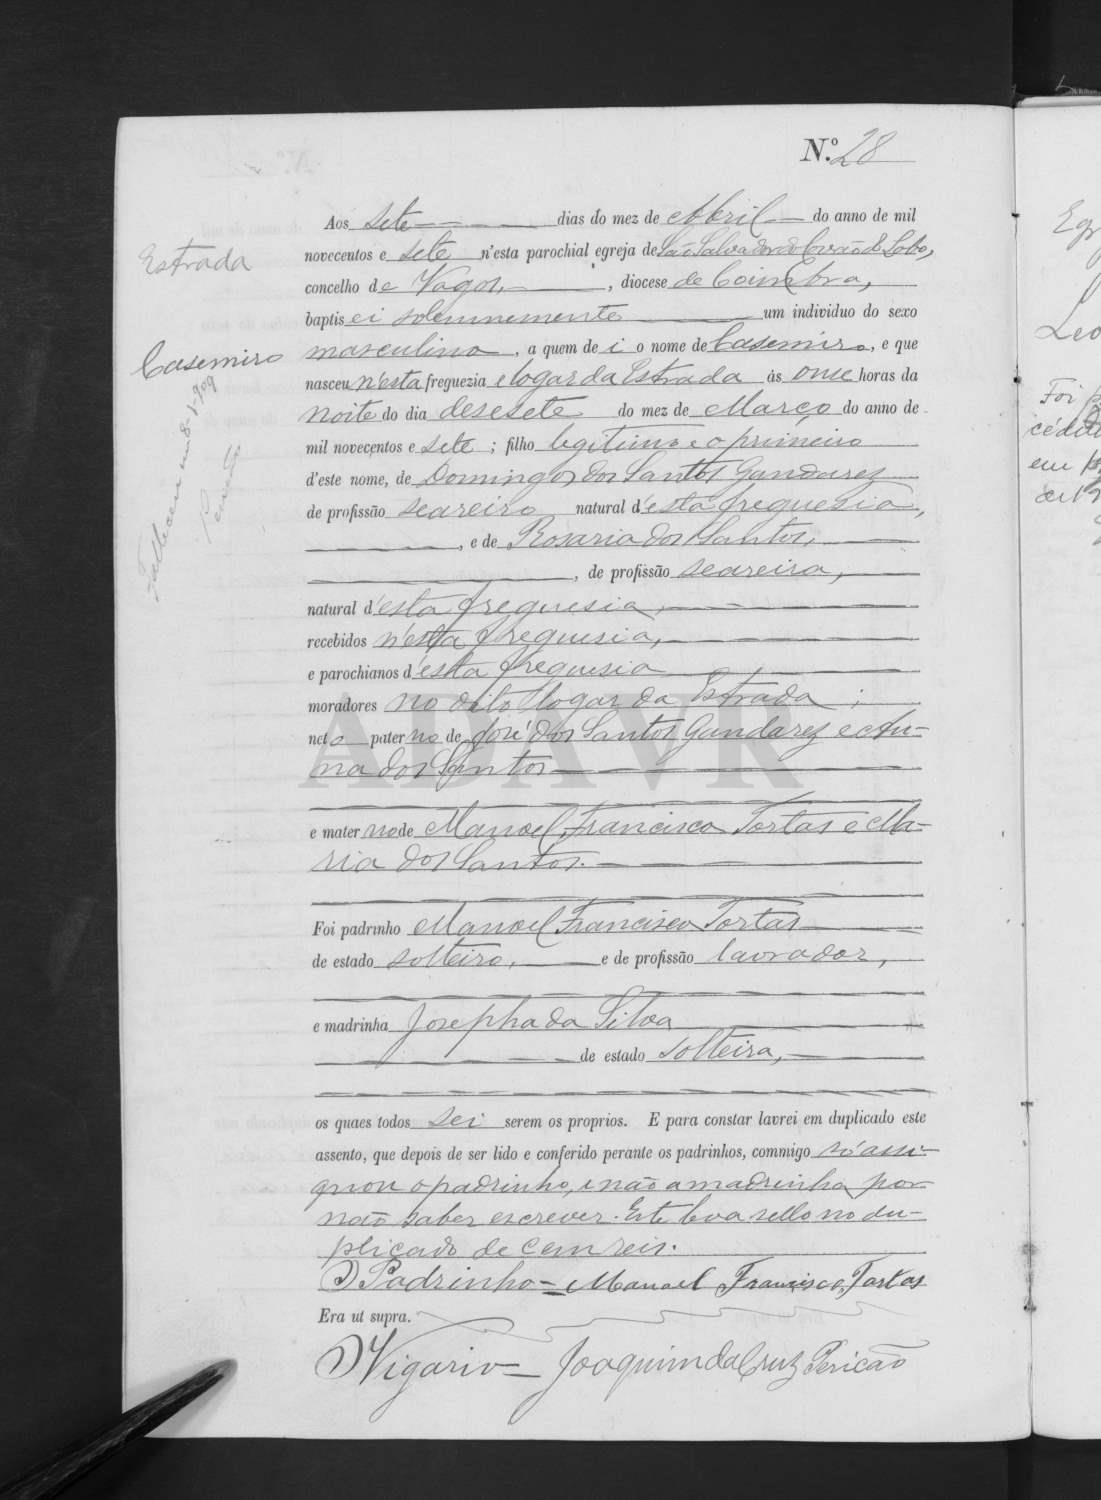 N.º 28
Aos sete dias do mez de Abril do anno de mil
Estrada
novecentos e sete n'esta parochial egreja de São Salvador do Covão do Lobo,
concelho de Vagos, , diocese de Coimbra,
baptisei solemnemente um individuo do sexo
Casemiro
masculino , a quem dei o nome de Casemiro, e que
nasceu n'esta freguezia e logar da Estrada ás onse horas da
noite do dia desesete do mez de Março do anno de
mil novecentos e sete ; filho legitimo e o primeiro
d'este nome, de Domingos dos Santos Gandarez
de profissão seareiro natural d'esta freguesia,
, e de Rosaria dos Santos,
Falleceu em 8-1909
, de profissão seareira,
natural d'esta freguesia,
recebidos n'esta freguesia,
e parochianos d'esta freguesia
moradores no dito logar da Estrada ;
neto paterno de José dos Santos Gandarez e An-
na dos Santos
ADAVR
e materno de Manoel Francisco Tortas e Ma-
ria dos Santos.
Foi padrinho Manoel Francisco Tortas
de estado solteiro, e de profissão lavrador,
e madrinha Josepha da Silva
de estado solteira,
os quaes todos sei serem os proprios. E para constar lavrei em duplicado este
assento, que depois de ser lido e conferido perante os padrinhos, commigo só assi-
gnou o padrinho, e não a madrinha por
não saber escrever. Este leva sello no du-
plicado de cem reis.
O Padrinho = Manoel Francisco Tortas
Era ut supra.
O Vigario = Joaquim da Cruz Pericão
Leo
Foi
em